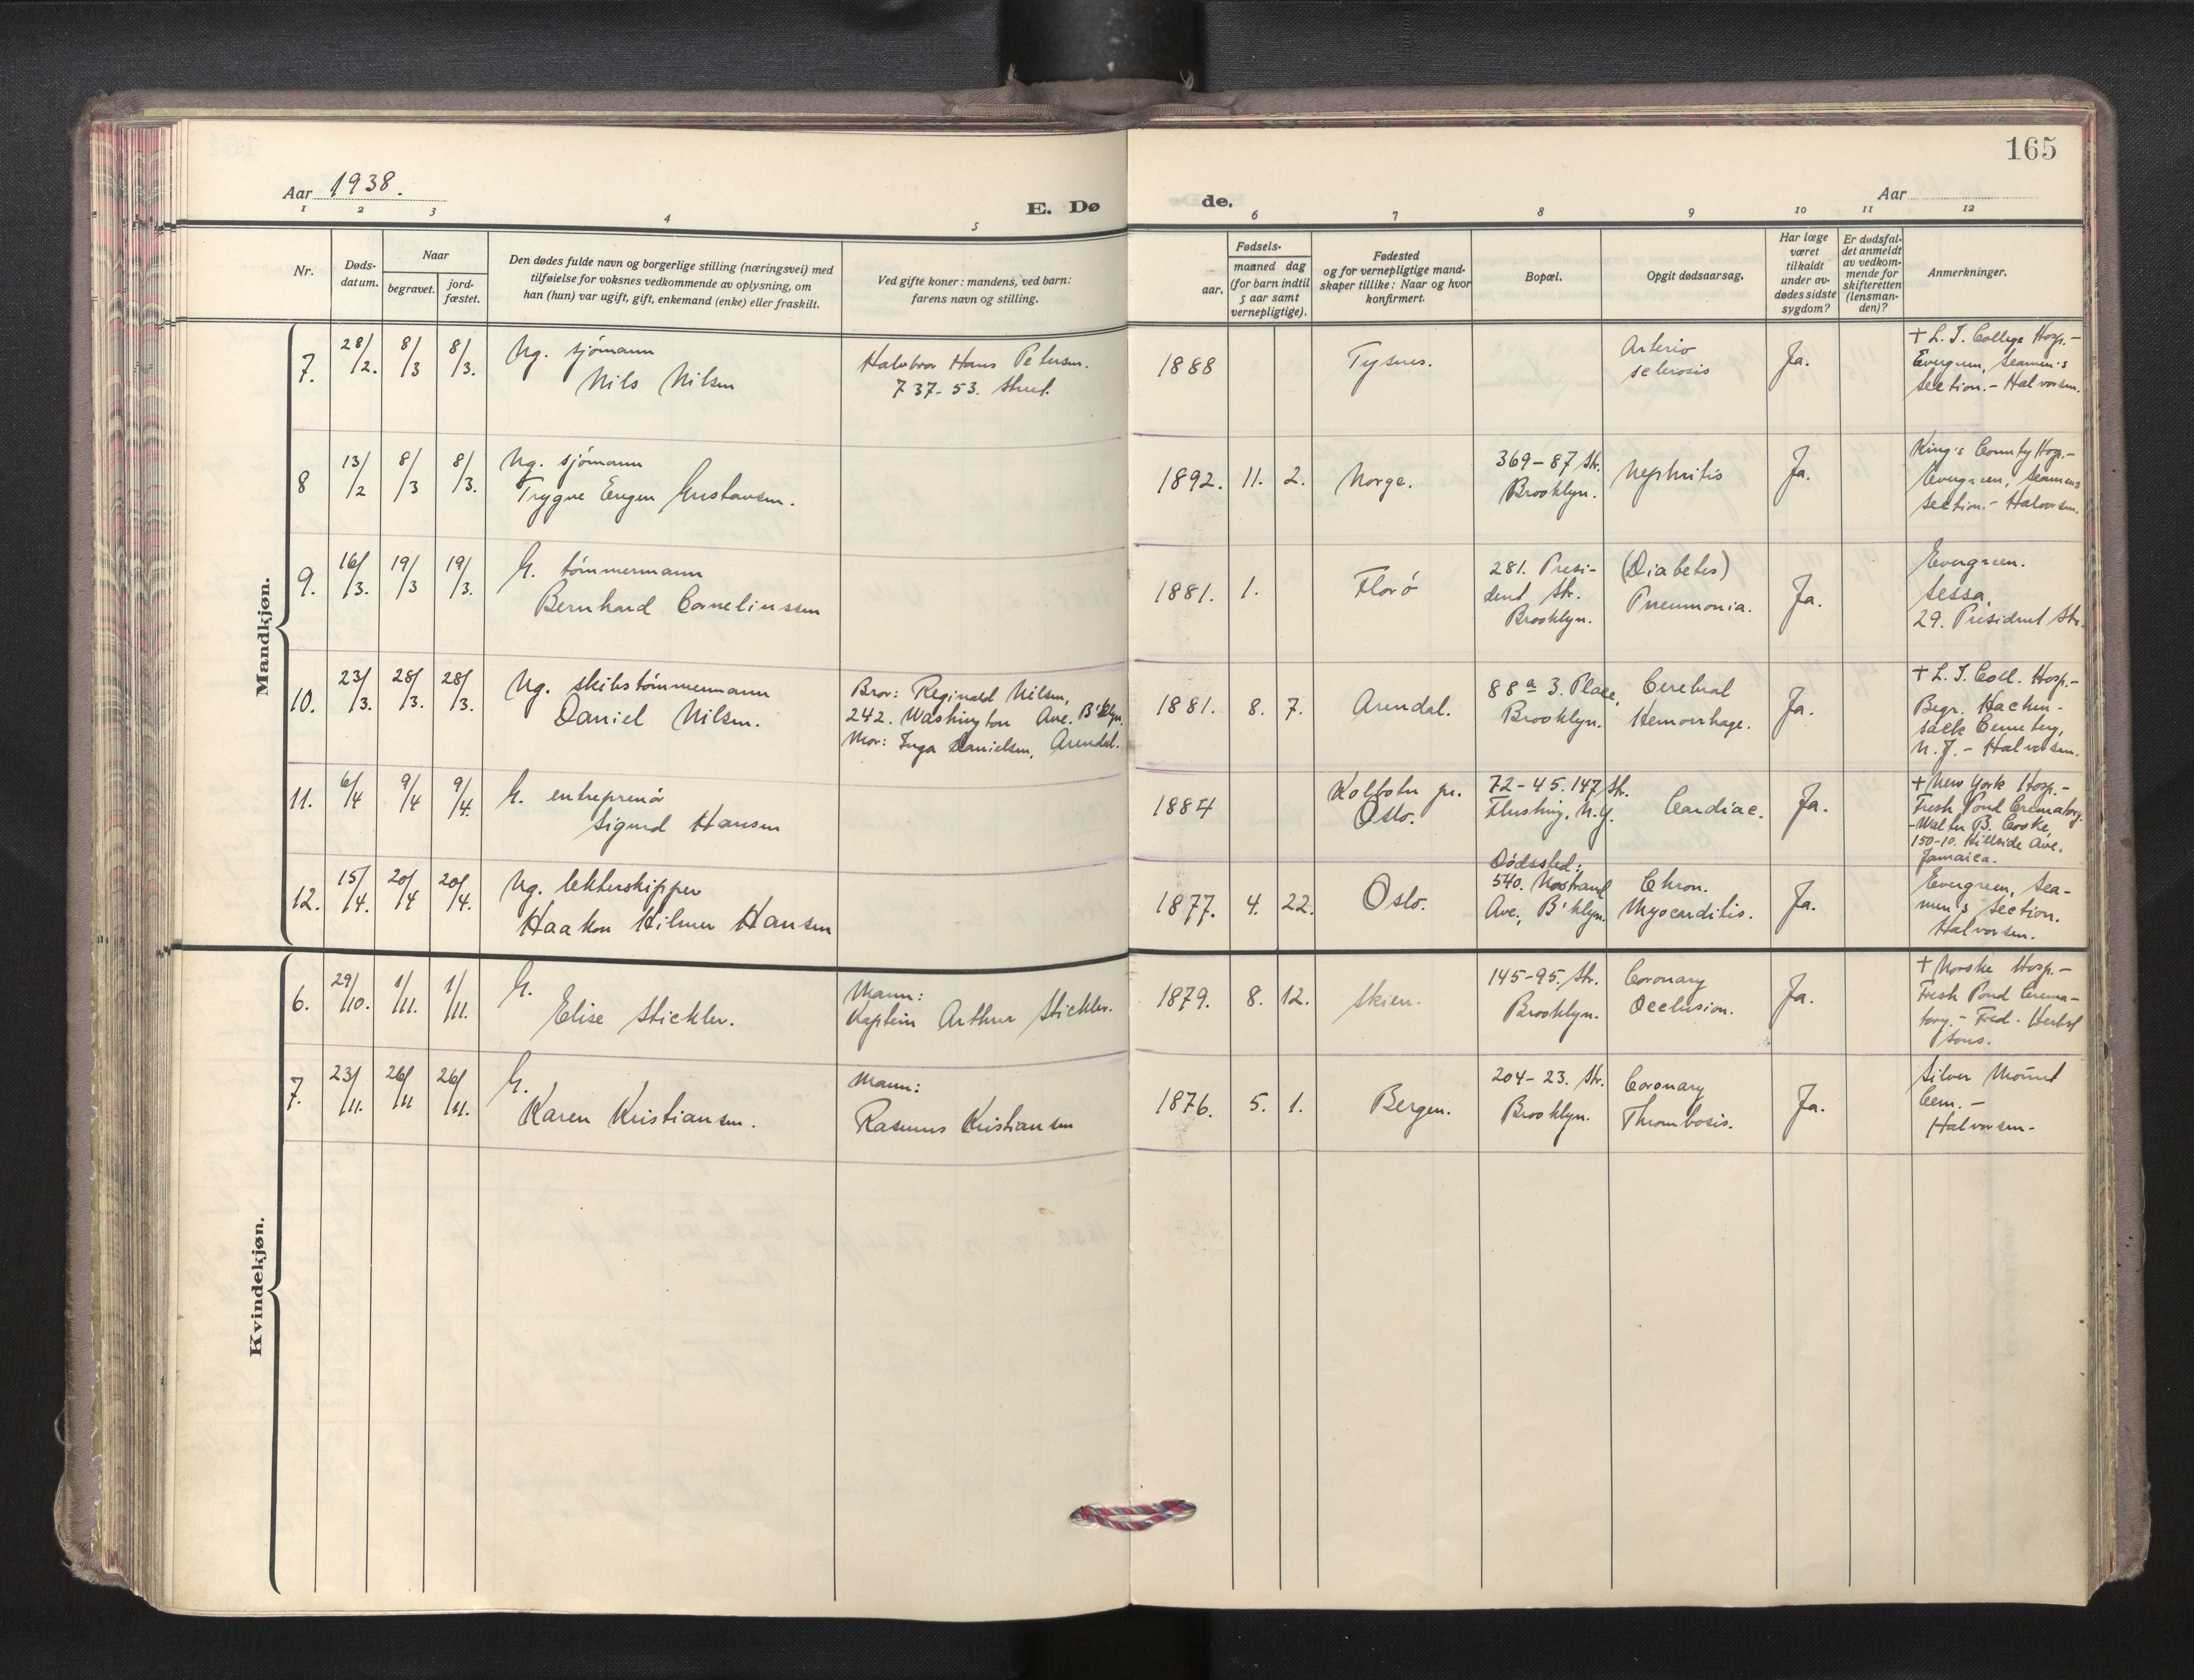 165
Aar 1938.
Aar
E. Døde.
1 2 3 4 5 6 7 8 9 10 11 12
Nr.
Døds-
datum.
Naar
begravet.
jord-
fæstet.
Den dødes fulde navn og borgerlige stilling (næringsvei) med
tilføielse for voksnes vedkommende av oplysning, om
han (hun) var ugift, gift, enkemand (enke) eller fraskilt.
Ved gifte koner: mandens, ved barn:
farens navn og stilling.
Fødsels-
aar.
maaned dag
(for barn indtil
5 aar samt
vernepligtige).
Fødested
og for vernepligtige mand-
skaper tillike: Naar og hvor
konfirmert.
Bopæl.
Opgit dødsaarsag.
Har læge
været
tilkaldt
under av-
dødes sidste
sygdom?
Er dødsfal-
det anmeldt
av vedkom-
mende for
skifteretten
(lensman-
den)?
Anmerkninger.
Mandkjøn.
7. 28/2. 8/3 8/3.
Ug. sjömann
Nils Nilsen
Halvbror Hans Petersen.
737-53. Street.
1888
Tysnes.
Arterio
sclerosis
Ja.
+ L. I. College Hosp.-
Evergreen, Seamen's
Section.- Halvorsen.
8 13/2 8/3 8/3.
Ug. sjömann
Trygve Eugen Gustavsen.
1892. 11. 2.
Norge.
369-87 Str.
Brooklyn.
Nephritis
Ja.
King's County Hosp.-
Evergreen, Seamens
Section.- Halvorsen.
9. 16/3. 19/3 19/3.
G. tömmermann
Bernhard Corneliussen
1881. 1.
Florö
281. Presi-
dent Str.
Brooklyn.
(Diabetes)
Pneumonia.
Ja.
Evergreen.
Sessa,
29. President Str.
10. 23/3. 28/3. 28/3.
Ug. skibstömmermann
Daniel Nilsen.
Bror: Reginald Nilsen,
242. Washington Ave. B'klyn.
Mor: Inga Danielsen, Arendal.
1881. 8. 7.
Arendal.
88a 3. Place,
Brooklyn.
Cerebral
Hemorrhage.
Ja.
+ L. I. Coll. Hosp.-
Begr. Hacken-
sack Cemetery,
N. J. - Halvorsen.
11. 6/4 9/4 9/4.
G. entreprenör
Sigurd Hansen
1884
Kolbotn pr.
Oslo.
72-45. 147 Str.
Flushing, N.Y.
Cardiac.
Ja.
+ New York Hosp.-
Fresh Pond Crematory.
-Walter B. Cooke,
150-10. Hillside Ave.
Jamaica.
12. 15/4. 20/4 20/4.
Ug. lekterskipper
Haakon Hilmer Hansen
1877. 4. 22.
Oslo.
Dödssted:
540. Nostrand
Ave., B'klyn.
Chron.
Myocarditis.
Ja.
Evergreen, Sea-
men's Section.
Halvorsen.
Kvindekjøn.
6. 29/10. 1/11. 1/11.
G.
Elise Stickler.
Mann:
Kaptein Arthur Stickler.
1879. 8. 12.
Skien.
145-95. Str.
Brooklyn.
Coronary
Occlusion.
Ja.
+ Norske Hosp.-
Fresh Pond Crema-
tory.- Fred. Herbst
Sons.
7. 23/11. 26/11 26/11.
G.
Karen Kristiansen.
Mann:
Rasmus Kristiansen
1876. 5. 1.
Bergen.
204-23. Str.
Brooklyn.
Coronary
Thrombosis.
Ja.
Silver Mount
Cem. -
Halvorsen-